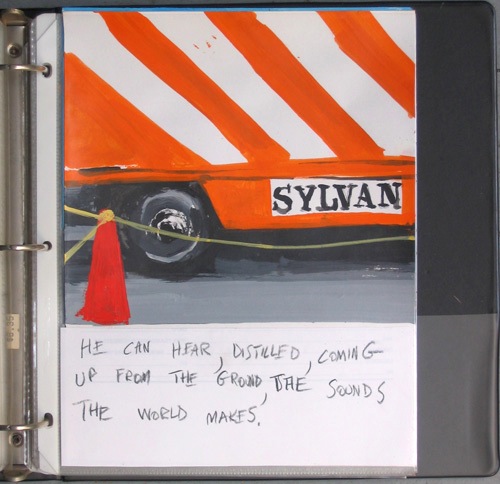 SYLVAN
HE CAN HEAR, DISTILLED, COMING
UP FROM THE GROUND, THE SOUNDS
THE WORLD MAKES.